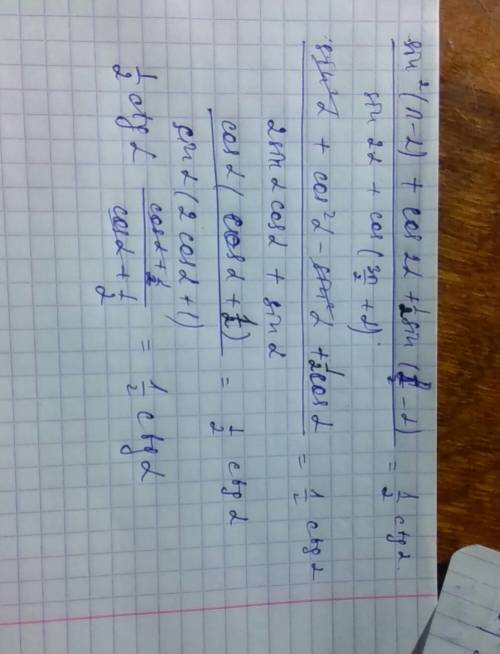 sin²(π-α) + cos 2α + ½ sin(π/2 - α)
sin 2α + cos(3π/2 + α)
= ½ ctg α.
sin²α + cos²α - sin²α + ½ cos α
2 sin α cos α + sin α
= ½ ctg α
cos α (cos α + ½)
sin α (2 cos α + 1)
= ½ ctg α
½ ctg α
cos α + ½
cos α + ½
= ½ ctg α